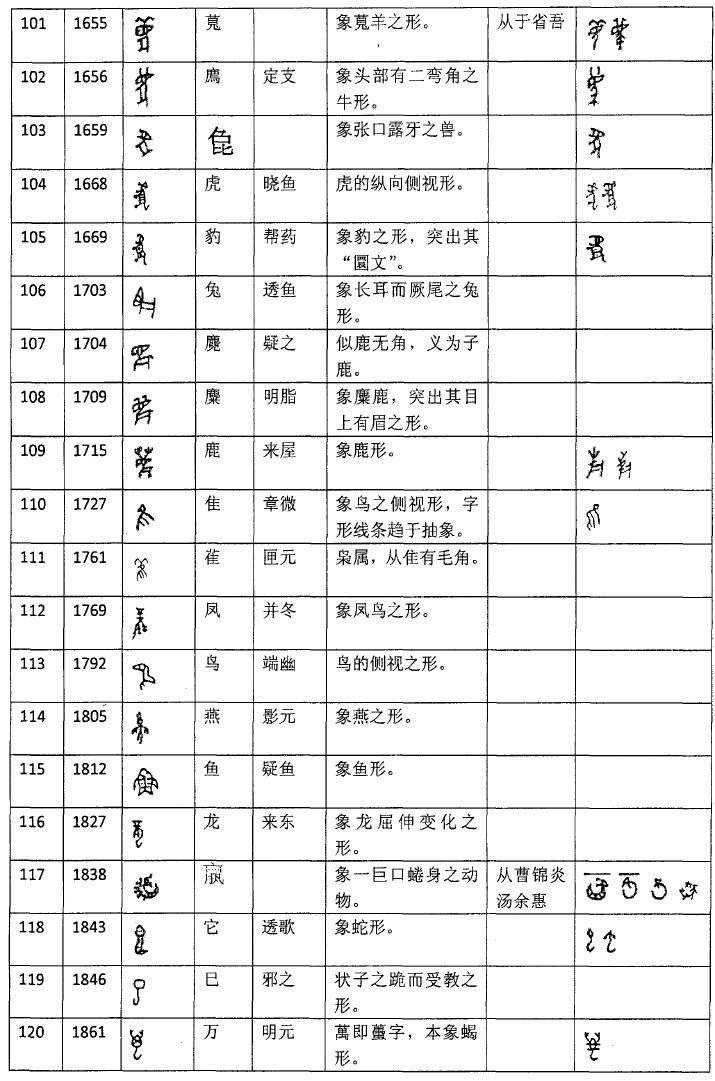 101 1655 萈 象萈羊之形。 从于省吾
102 1656 廌 定支 象头部有二弯角之
牛形。
103 1659 象张口露牙之兽。
104 1668 虎 晓鱼 虎的纵向侧视形。
105 1669 豹 帮药 象豹之形，突出其
“圜文”。
106 1703 兔 透鱼 象长耳而厥尾之兔
形。
107 1704 麑 疑之 似鹿无角，义为子
鹿。
108 1709 麋 明脂 象麋鹿，突出其目
上有眉之形。
109 1715 鹿 来屋 象鹿形。
110 1727 隹 章微 象鸟之侧视形，字
形线条趋于抽象。
111 1761 萑 匣元 枭属，从隹有毛角。
112 1769 凤 并冬 象凤鸟之形。
113 1792 鸟 端幽 鸟的侧视之形。
114 1805 燕 影元 象燕之形。
115 1812 鱼 疑鱼 象鱼形。
116 1827 龙 来东 象龙屈伸变化之
形。
117 1838 象一巨口蜷身之动 从曹锦炎
物。 汤余惠
118 1843 它 透歌 象蛇形。
119 1846 巳 邪之 状子之跪而受教之
形。
120 1861 万 明元 萬即蠆字，本象蝎
形。